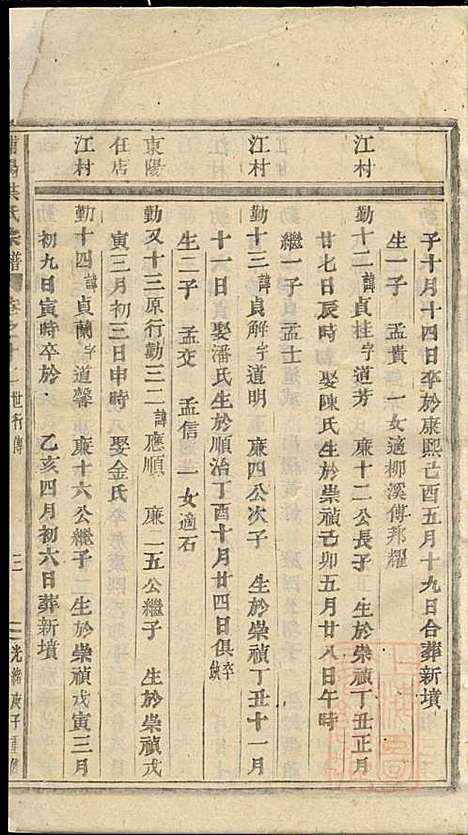 子十月十四日卒於康熙己酉五月十九日合葬新墳
生一子 孟貴 一女適柳溪傅邦耀
江村
勤十二諱貞桂字道芳 廉十二公長子 生於崇禎丁丑正月
廿七日辰時 娶陳氏生於崇禎己卯五月廿八日午時
繼一子孟士
江村
勤十三諱貞解字道明 廉四公次子 生於崇禎丁丑十一月
十一日娶潘氏生於順治丁酉十月廿四日俱卒缺
生二子 孟交 孟信 一女適石
東陽
任店
勤又十三原行勤三二諱應順 廉二五公繼子 生於崇禎戊
寅三月初三日申時 娶金氏
江村
勤十四諱貞蘭字道馨 廉十六公繼子 生於崇禎戊寅三月
初九日寅時卒於 乙亥四月初六日葬新墳
浦陽洪氏宗譜 卷之十二 世行傳 三 光緒庚子重修